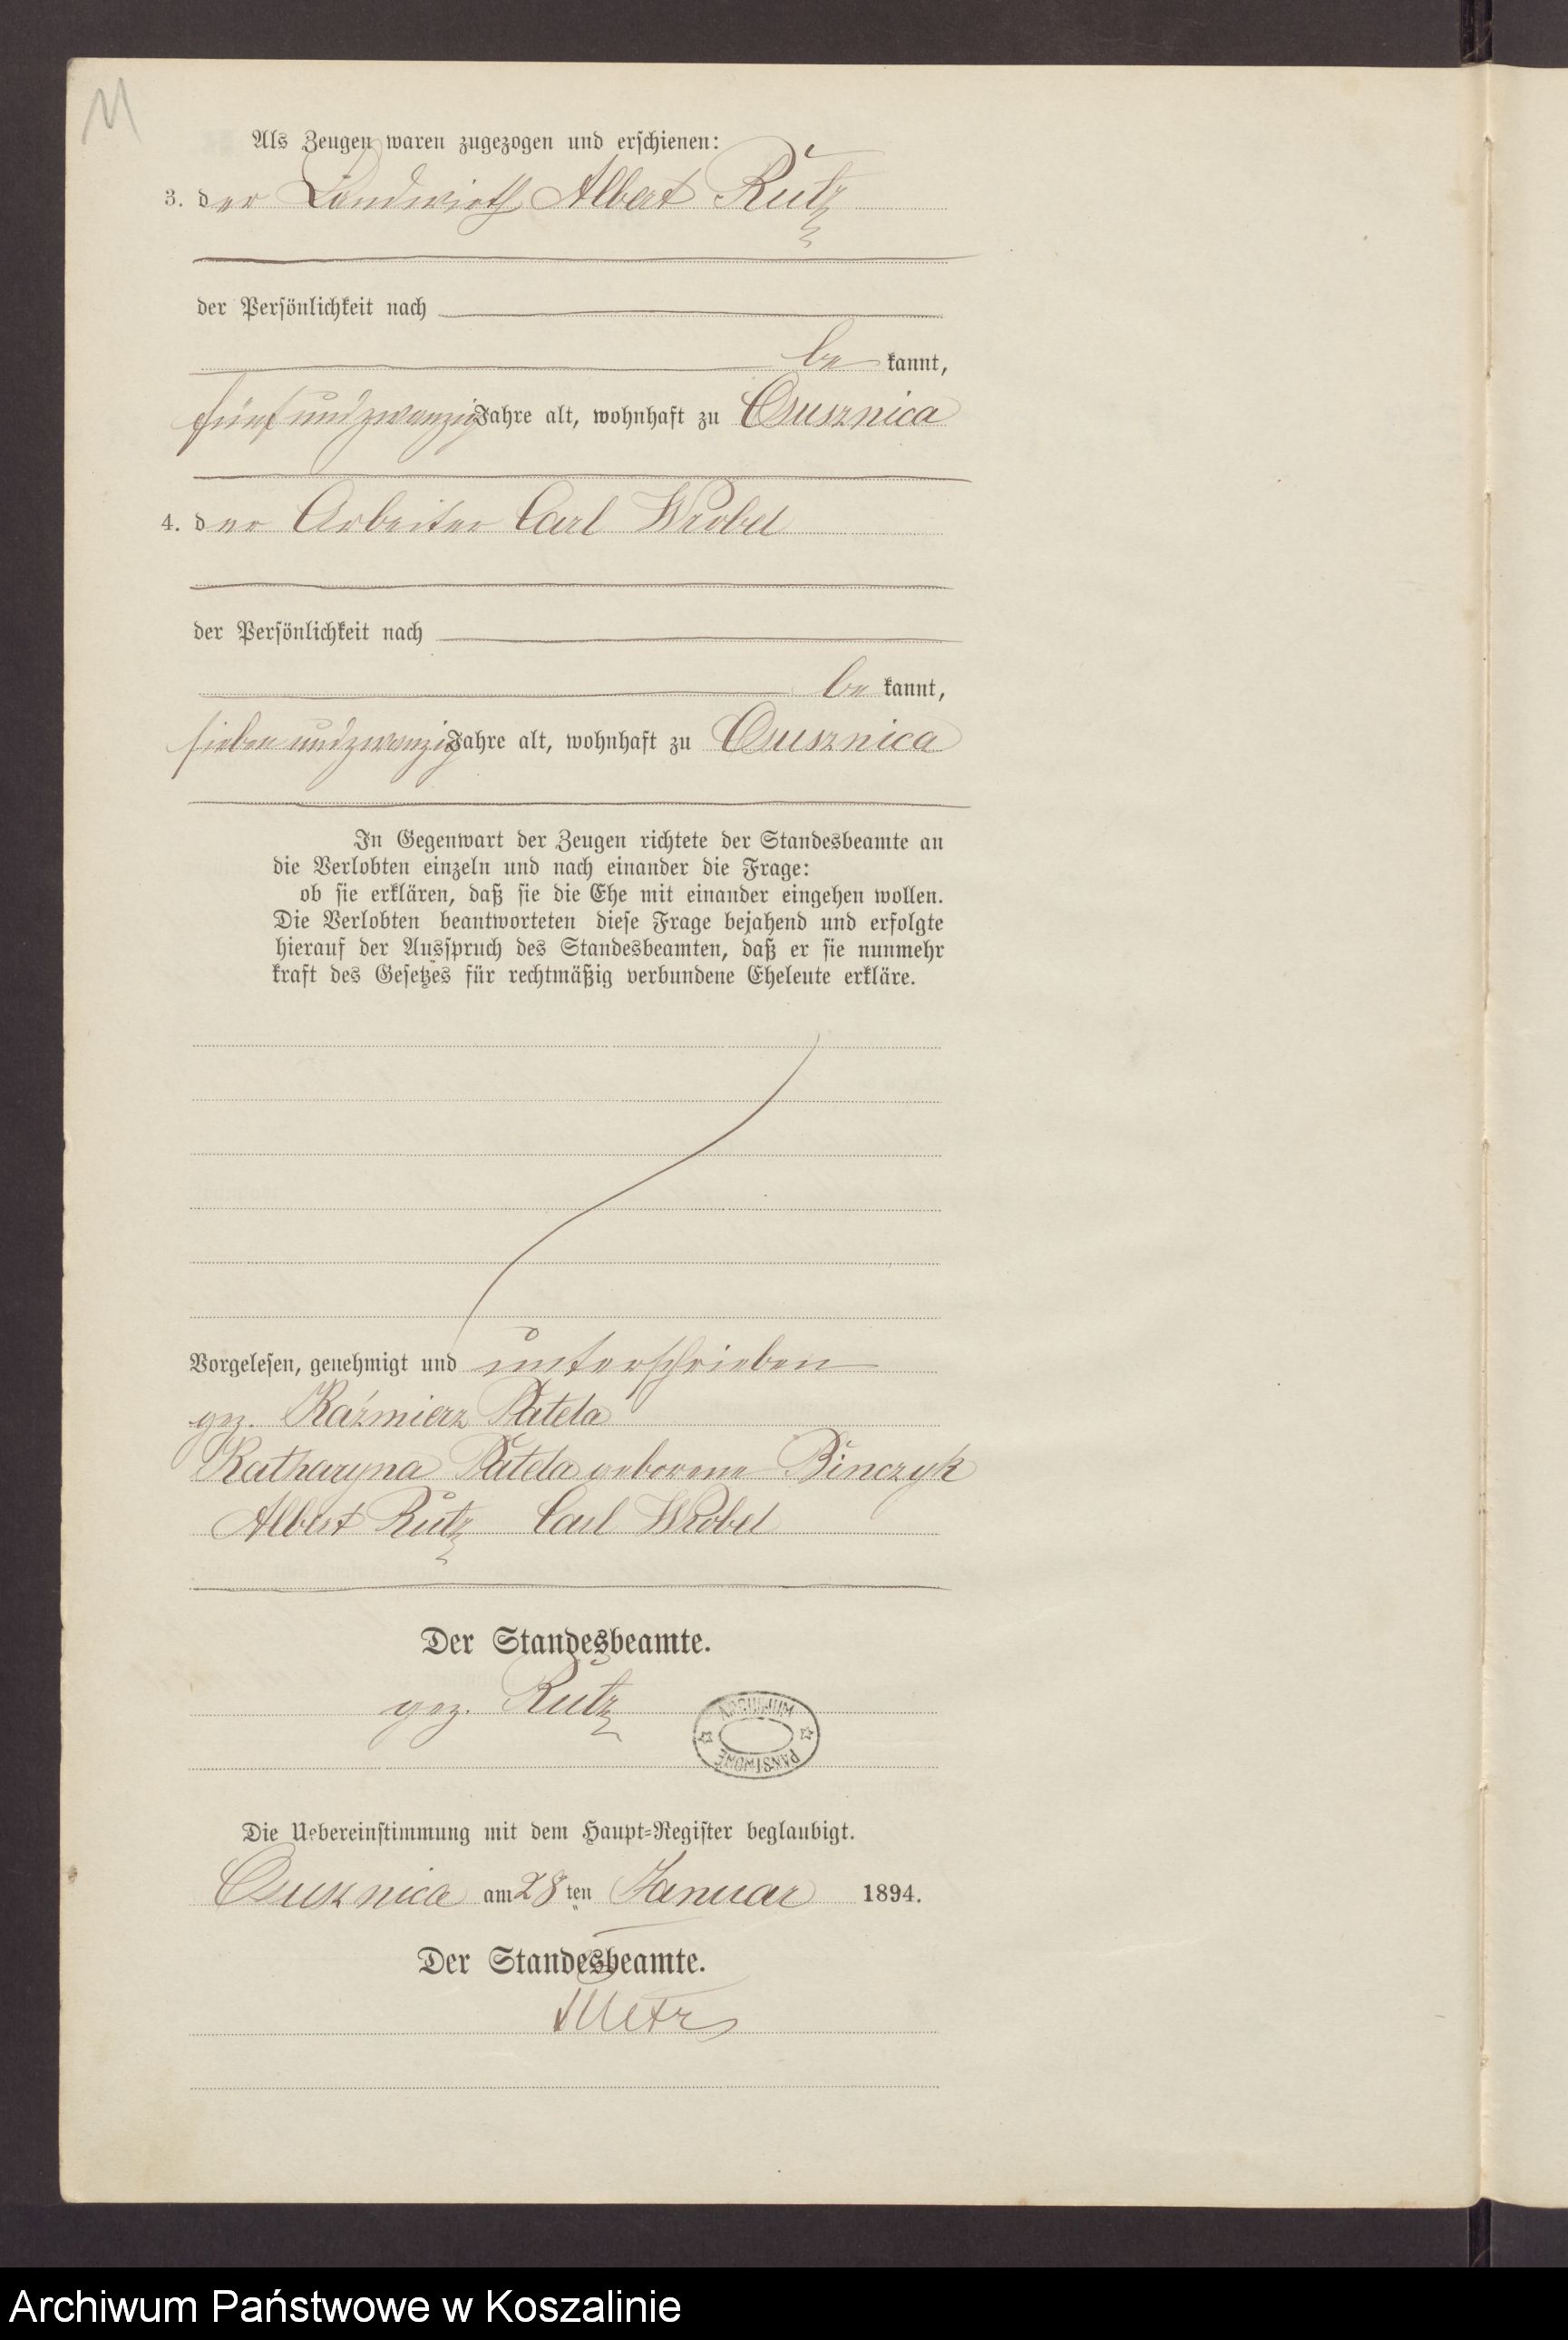 11
Als Zeugen waren zugezogen und erschienen:
3. der Landwirth Albert Rutz
der Persönlichkeit nach
be kannt,
fünfundzwanzig Jahre alt, wohnhaft zu Ossusznica
4. der Arbeiter Carl Wrobel
der Persönlichkeit nach
be kannt,
siebenundzwanzig Jahre alt, wohnhaft zu Ossusznica
In Gegenwart der Zeugen richtete der Standesbeamte an
die Verlobten einzeln und nach einander die Frage:
ob sie erklären, daß sie die Ehe mit einander eingehen wollen.
Die Verlobten beantworteten diese Frage bejahend und erfolgte
hierauf der Ausspruch des Standesbeamten, daß er sie nunmehr
kraft des Gesetzes für rechtmäßig verbundene Eheleute erkläre.
Vorgelesen, genehmigt und unterschrieben
gez. Kaźmierz
Katharyna geborene Binczyk
Albert Rutz Carl Wrobel
Der Standesbeamte.
gez. Rutz
ARCHIWUM PAŃSTWOWE
Die Uebereinstimmung mit dem Haupt=Register beglaubigt.
am 28 ten Januar 1894.
Der Standesbeamte.
Archiwum Państwowe w Koszalinie